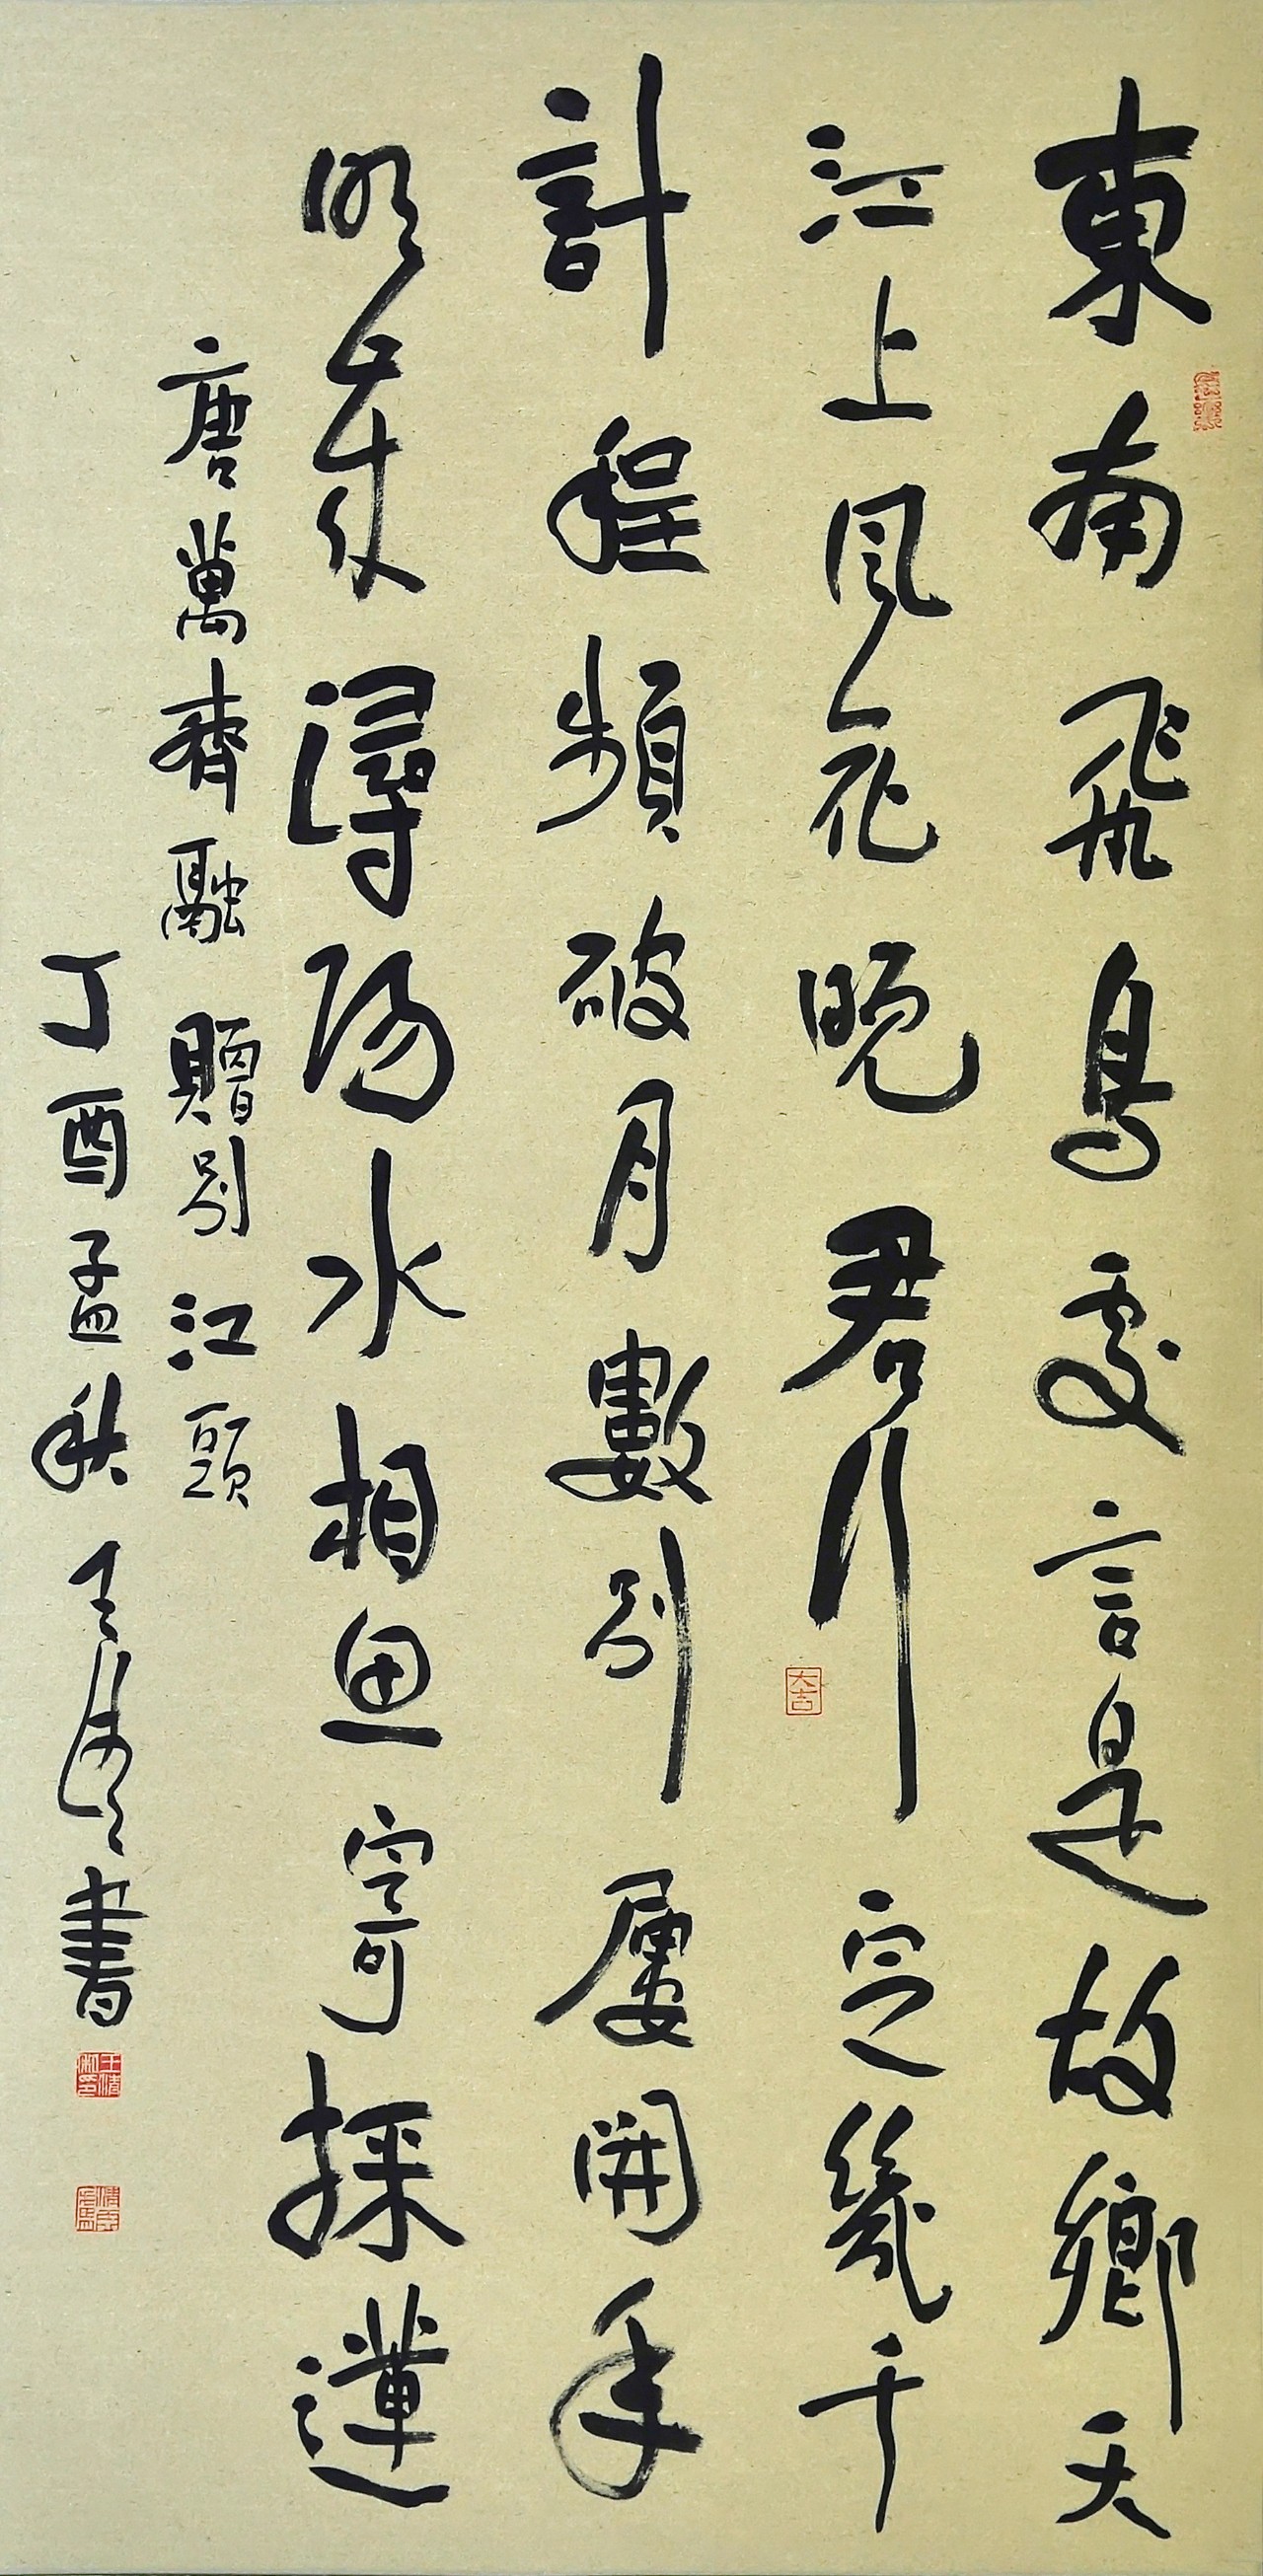 東南飛鳥處言是故鄉天
江上風花晚君行定幾千
計程頻破月數別屢開年
明歲潯陽水相思寄採蓮
唐萬齊融贈別江頭
丁酉孟秋王書
大吉